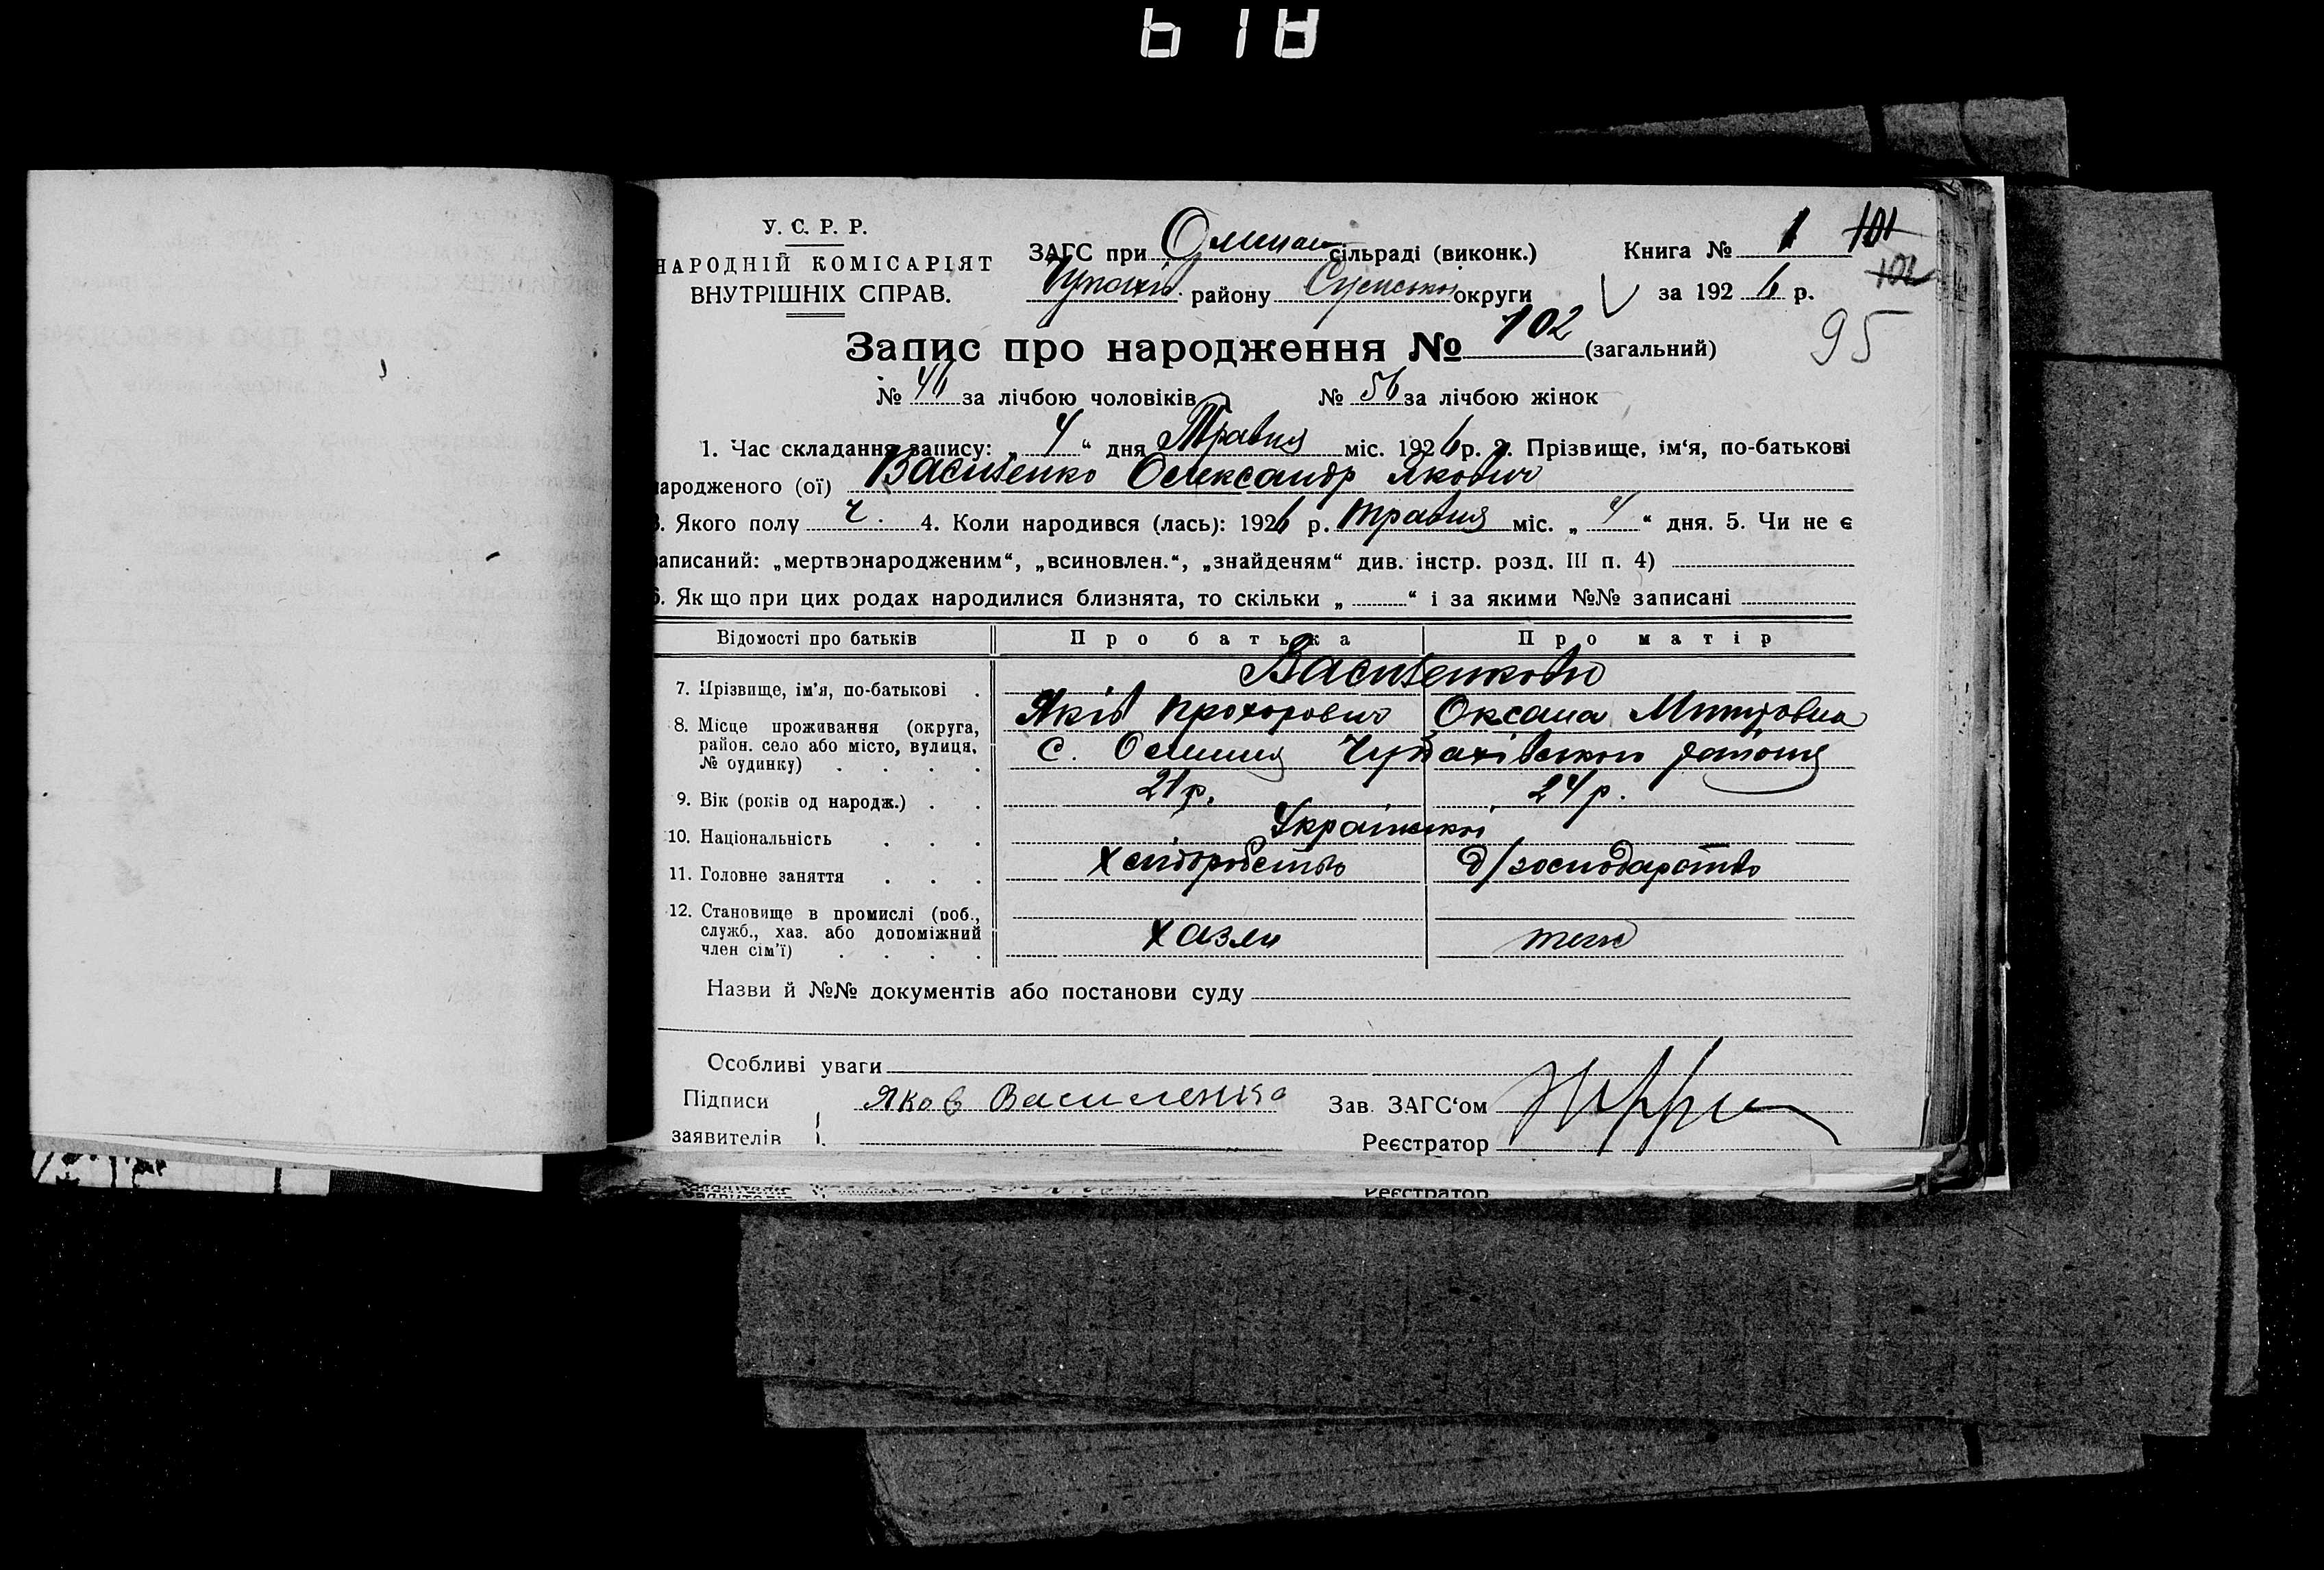 У. С. Р. Р.
НАРОДНІЙ КОМІСАРІЯТ
ВНУТРІШНІХ СПРАВ.
ЗАГС при сільраді (виконк.)
Чупахів. району Сумської округи
Книга № 1 101
за 1926 р. 102
95
Запис про народження № 102 (загальний)
№ 46 за лічбою чоловіків № 56 за лічбою жінок
1. Час складання запису: „ 4 “ дня Травня міс. 1926 р. 2. Прізвище, ім‘я, по-батькові
народженого (ої) Василенко Олександр Якович
3. Якого полу ч. 4. Коли народився (лась): 1926 р. травня міс. „ 4 “ дня. 5. Чи не є
записаний: „мертвонародженим“, „всиновлен.“, „знайденям“ див. інстр. розд. III п. 4)
6. Як що при цих родах народилися близнята, то скільки „ “ і за якими №№ записані
Відомості про батьків Про батька Про матір
Василенкови
7. Прізвище, ім'я, по-батькові .
Яків Прохорович Оксана Митровна
8. Місце проживання (округа,
район. село або місто, вулиця,
№ будинку) . . . .
с. Чупахівского района
9. Вік (років од народж.) . . 21 р. 24 р.
10. Національність . . . Української
11. Головне заняття . . . хліборобство д/господарство
12. Становище в промислі (роб.,
служб., хаз. або допоміжний
член сім'ї) . . . .
хазяи теж
Назви й №№ документів або постанови суду
Особливі уваги
Підписи Яков Василенко Зав. ЗАГС‘ом
заявителів Реєстратор
Реєстратор